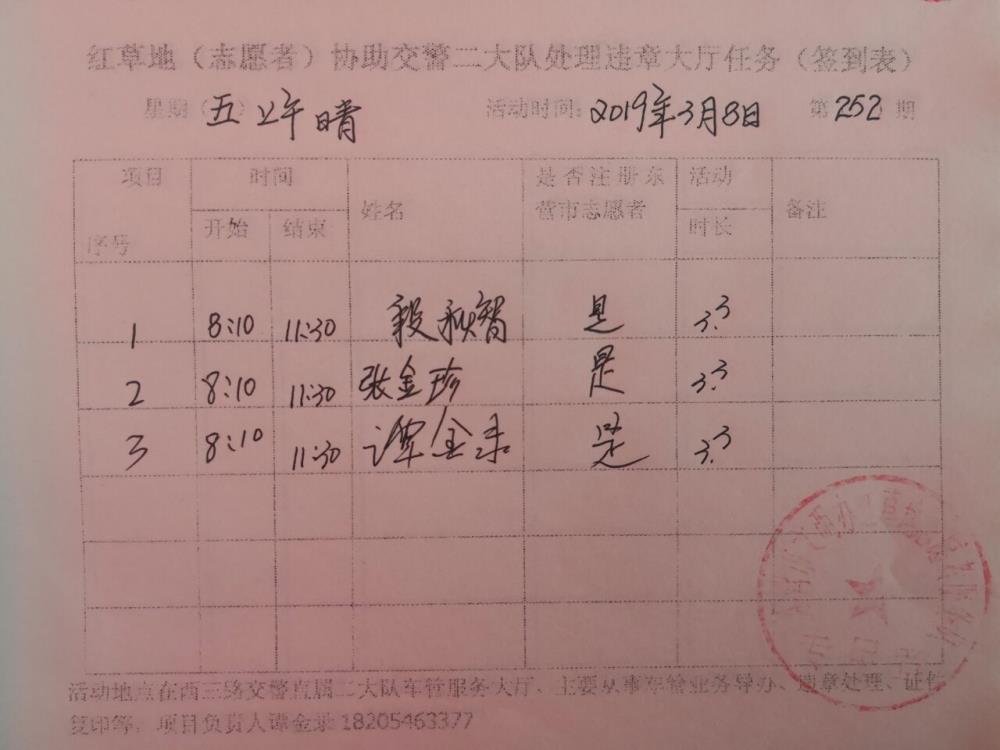 红草地（志愿者）协助交警二大队处理违章大厅任务（签到表）
星期（五）上午 晴 活动时间：2019年3月8日 第252期
项目 时间 姓名 是否注册东营市志愿者 活动时长 备注
序号 开始 结束
1 8:10 11:30 秋智 是 3.3
2 8:10 11:30 张金珍 是 3.3
3 8:10 11:30 谭金录 是 3.3
活动地点在西三路交警直属二大队车管服务大厅、主要从事车管业务导办、违章处理、证件
复印等，项目负责人谭金录 18205463377